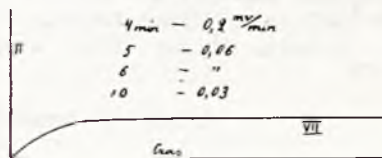 4 min — 0,2 mv/min
5 — 0,06
6 — "
10 — 0,03
II
VII
Czas